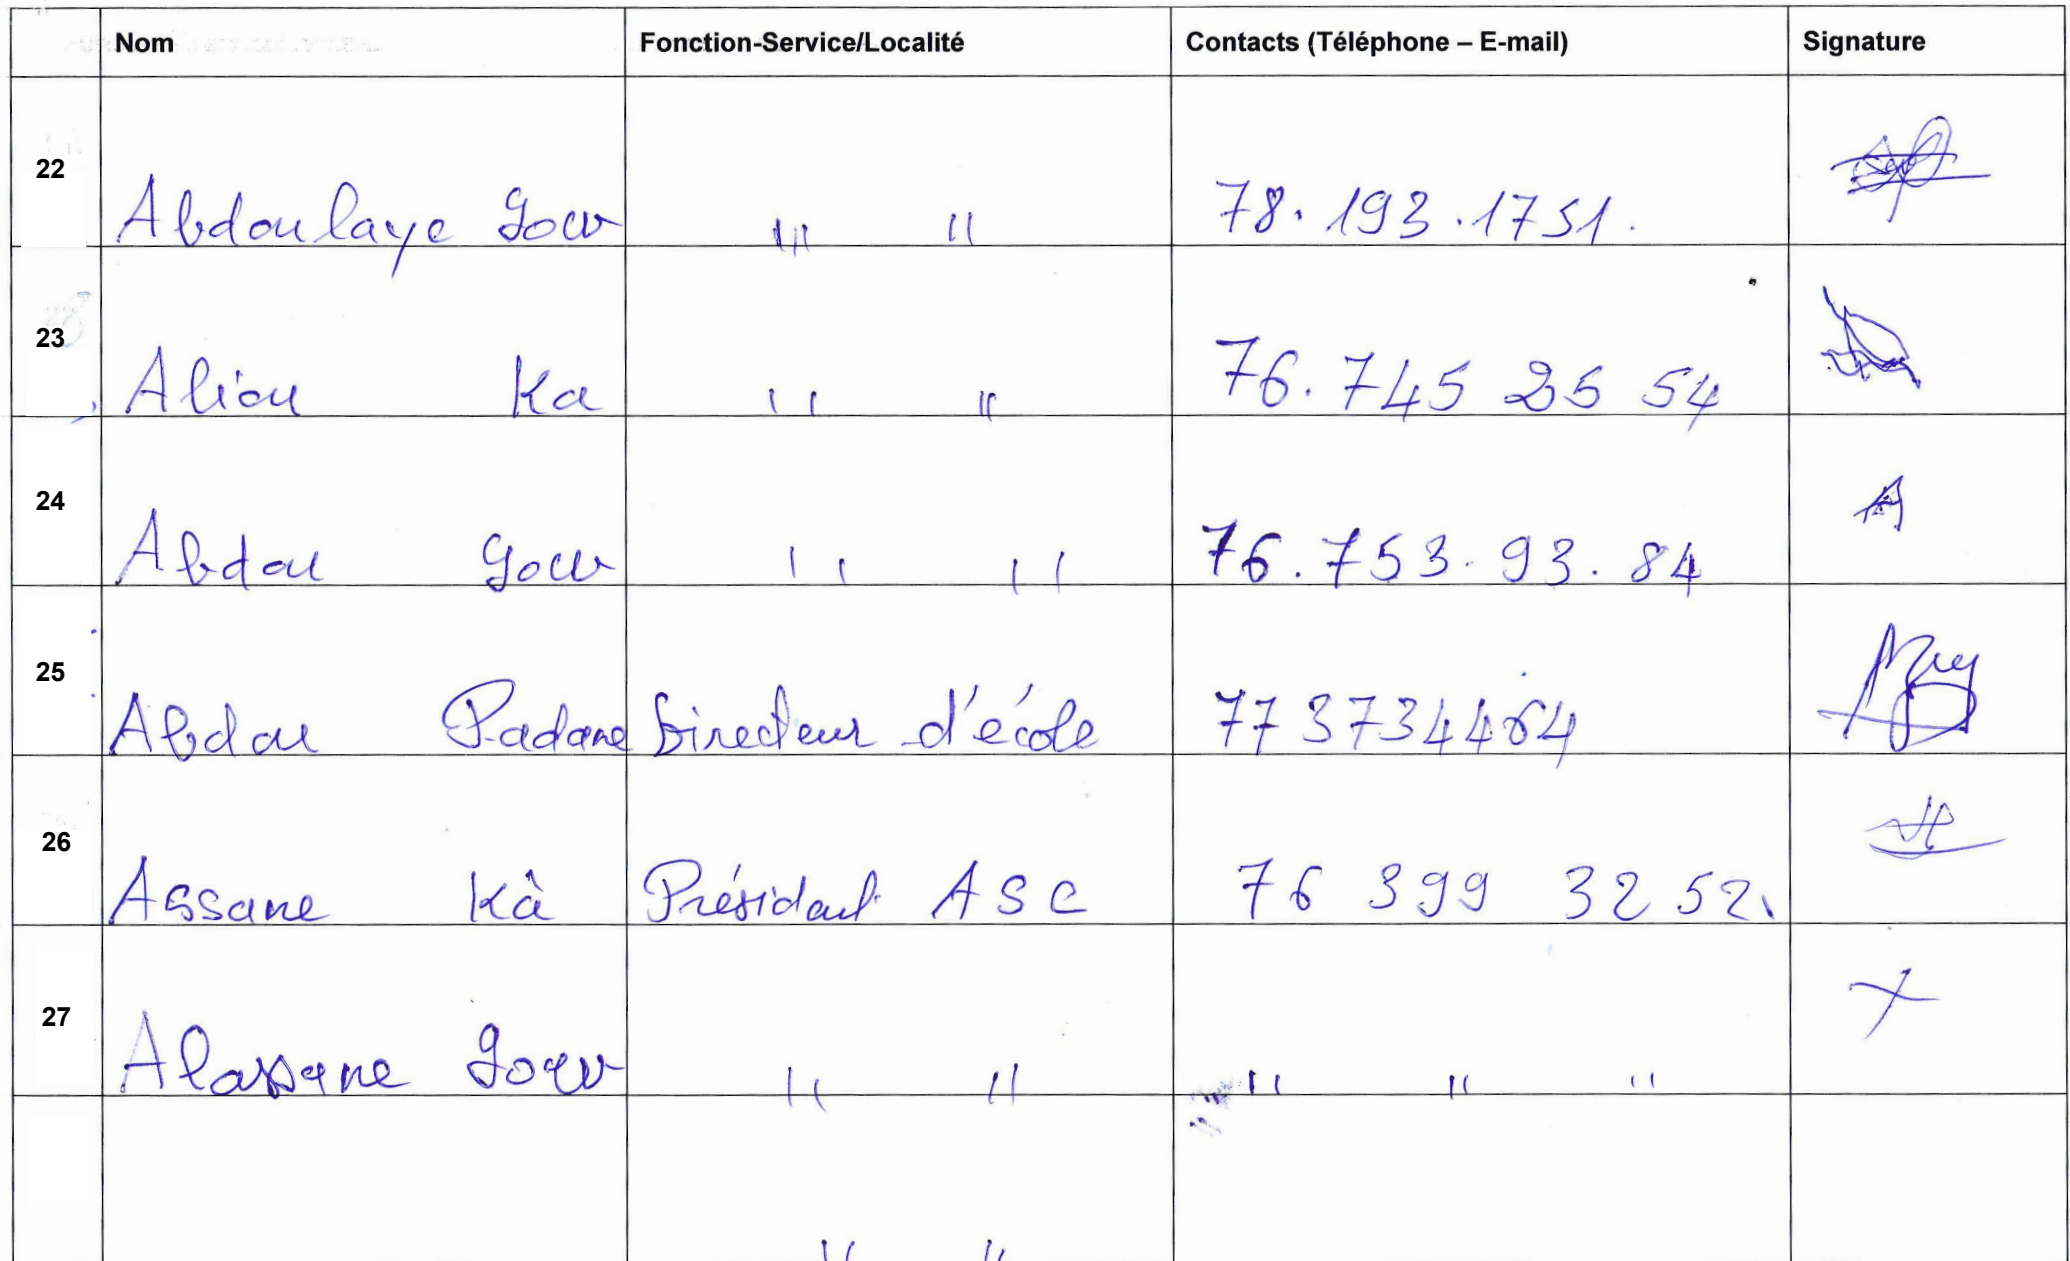 Nom Fonction-Service/Localité Contacts (Téléphone – E-mail) Signature
22 Abdoulaye Sow " " 78.193.1751.
23 Aliou Ka " " 76.745 25 54
24 Abdou Sow " " 76.753.93.84
25 Abdou Padane Directeur d'école 773734464
26 Assane Kà Président ASC 76 399 32 52.
27 Alassane Sow " " " " "
" "